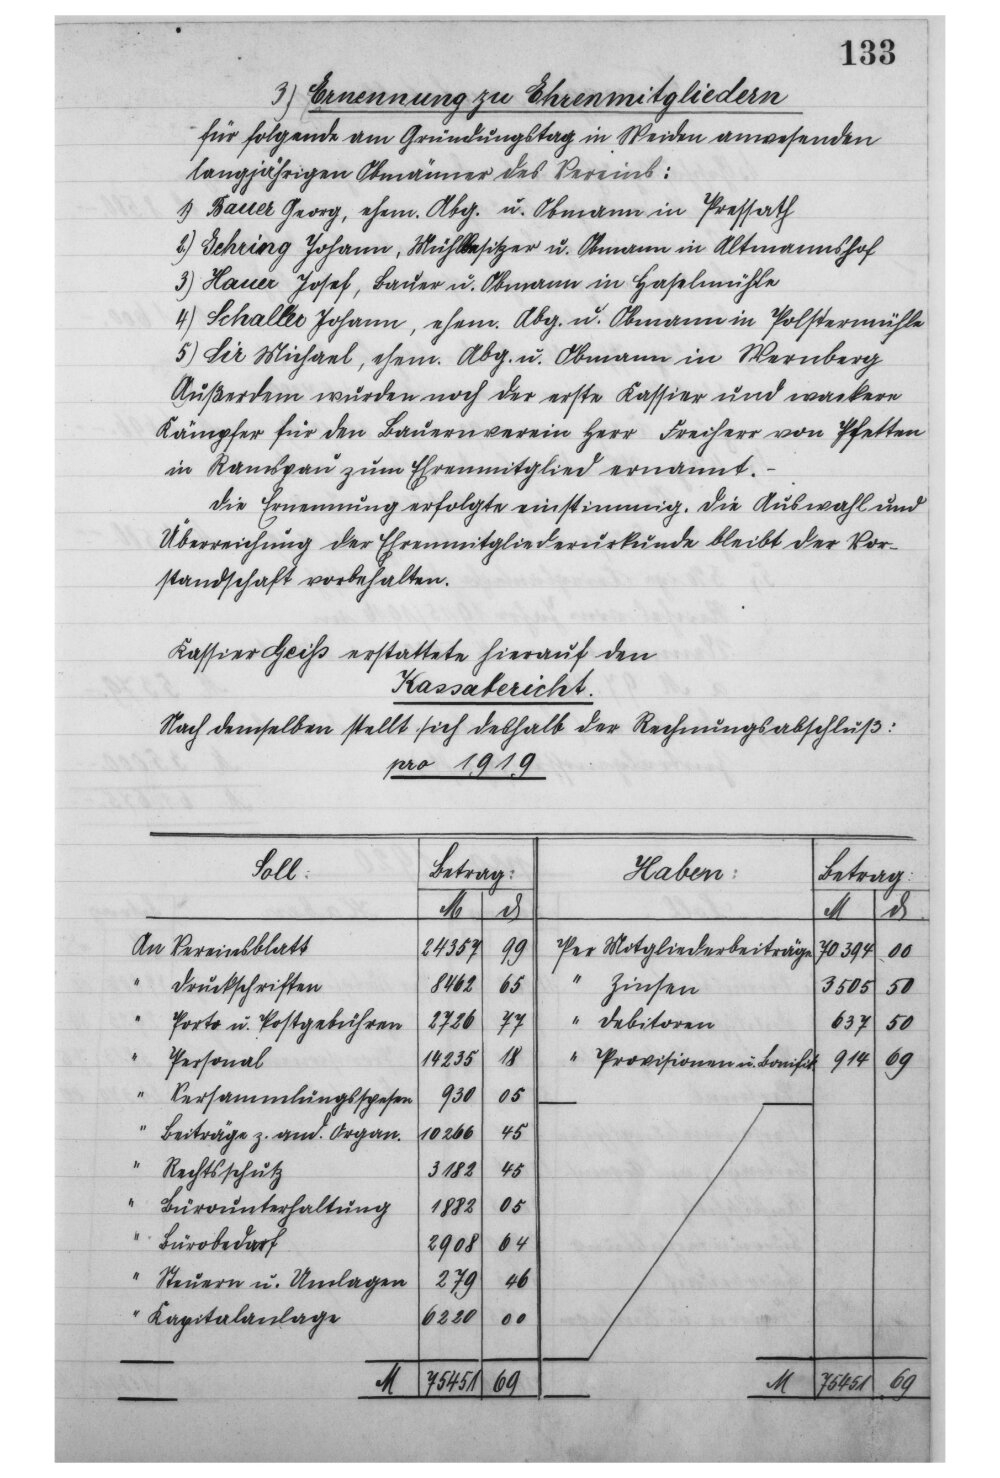 133
3) Ernennung zu Ehrenmitgliedern
für folgende am Gründungstag in Weiden anwesenden
langjährigen Obmänner des Vereins:
1) Bauer Georg, ehem. Abg. u. Obmann in Pressath
2) Gehring Johann, Mühlbesitzer u. Obmann in Altmannshof
3) Hauer Josef, Bauer u. Obmann in Haselmühle
4) Schaller Johann, ehem. Abg. u. Obmann in Polstermühle
5) Lir Michael, ehem. Abg. u. Obmann in Wernberg
Außerdem wurden noch der erste Kassier und wackere
Kämpfer für den Bauernverein Herr Freiherr von Pfetten
in Ramspau zum Ehrenmitglied ernannt. –
Die Ernennung erfolgte einstimmig. Die Auswahl und
Überreichung der Ehrenmitgliederurkunde bleibt der Vor-
standschaft vorbehalten.
Kassier Geiß erstattete hierauf den
Kassabericht.
Nach demselben stellt sich deshalb der Rechnungsabschluß:
pro 1919
Soll: Betrag: Haben: Betrag:
M ₰ M ₰
An Vereinsblatt 24357 99 Per Mitgliederbeiträge 70394 00
" Druckschriften 8462 65 " Zinsen 3505 50
" Porto u. Postgebühren 2726 77 " Debitoren 637 50
" Personal 14235 18 " Provisionen u. Bonifik. 914 69
" Versammlungsspesen 930 05
" Beiträge z. and. Organ. 10266 45
" Rechtsschutz 3182 45
" Bürounterhaltung 1882 05
" Bürobedarf 2908 64
" Steuern u. Umlagen 279 46
" Kapitalanlage 6220 00
M 75451 69 M 75451 69